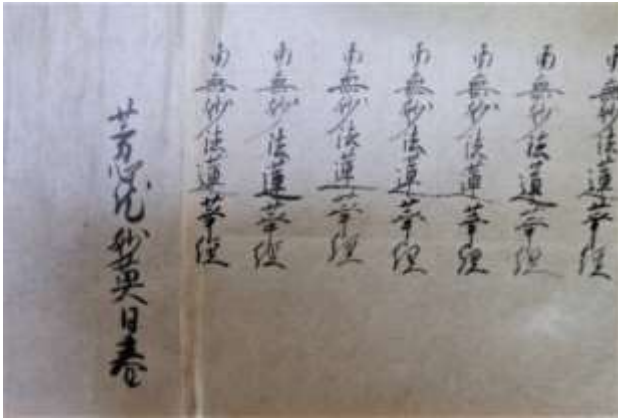 南無妙法蓮華経
南無妙法蓮華経
南無妙法蓮華経
南無妙法蓮華経
南無妙法蓮華経
南無妙法蓮華経
南無妙法蓮華経
妙英日春